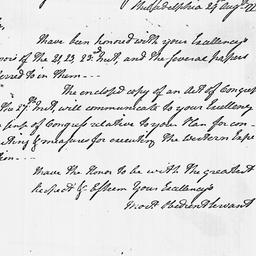 Philadelphia 29 Augt. 17
have been honored with your Excellency's
of the 21, 23, 23d. Inst, and the several papers
ferred to in them --
The enclosed copy of an Act of Congress
the 27th. Inst, will communicate to your Excellency
sense of Congress relative to your Plan for con-
ting & measures for executing the Western Expe
tion --
have the honor to be with the greatest
Respect & Esteem Your Excellency's
most Obedient Servant